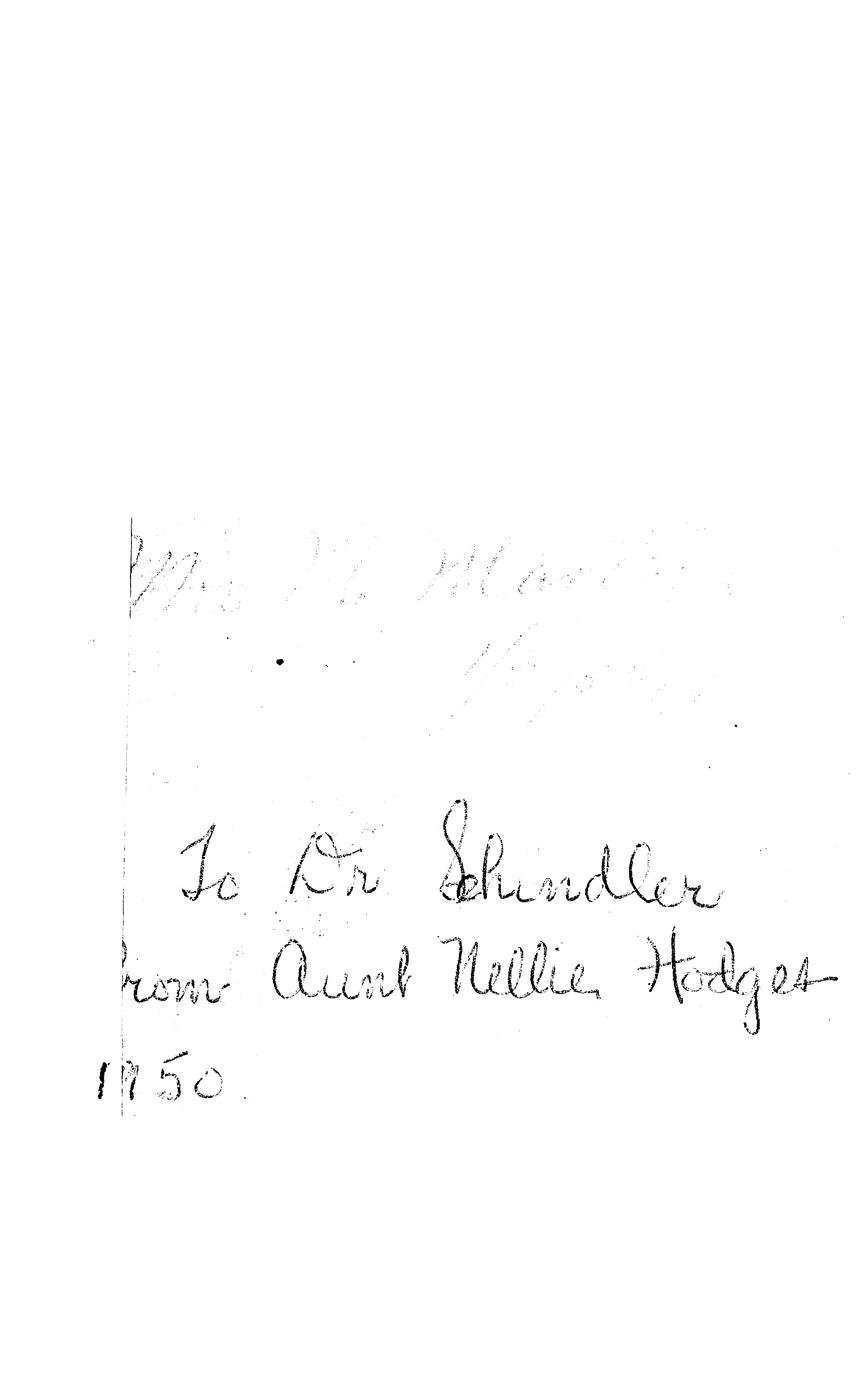 Mrs M
To Dr Schindler
from Aunt Nellie Hodges
1950.